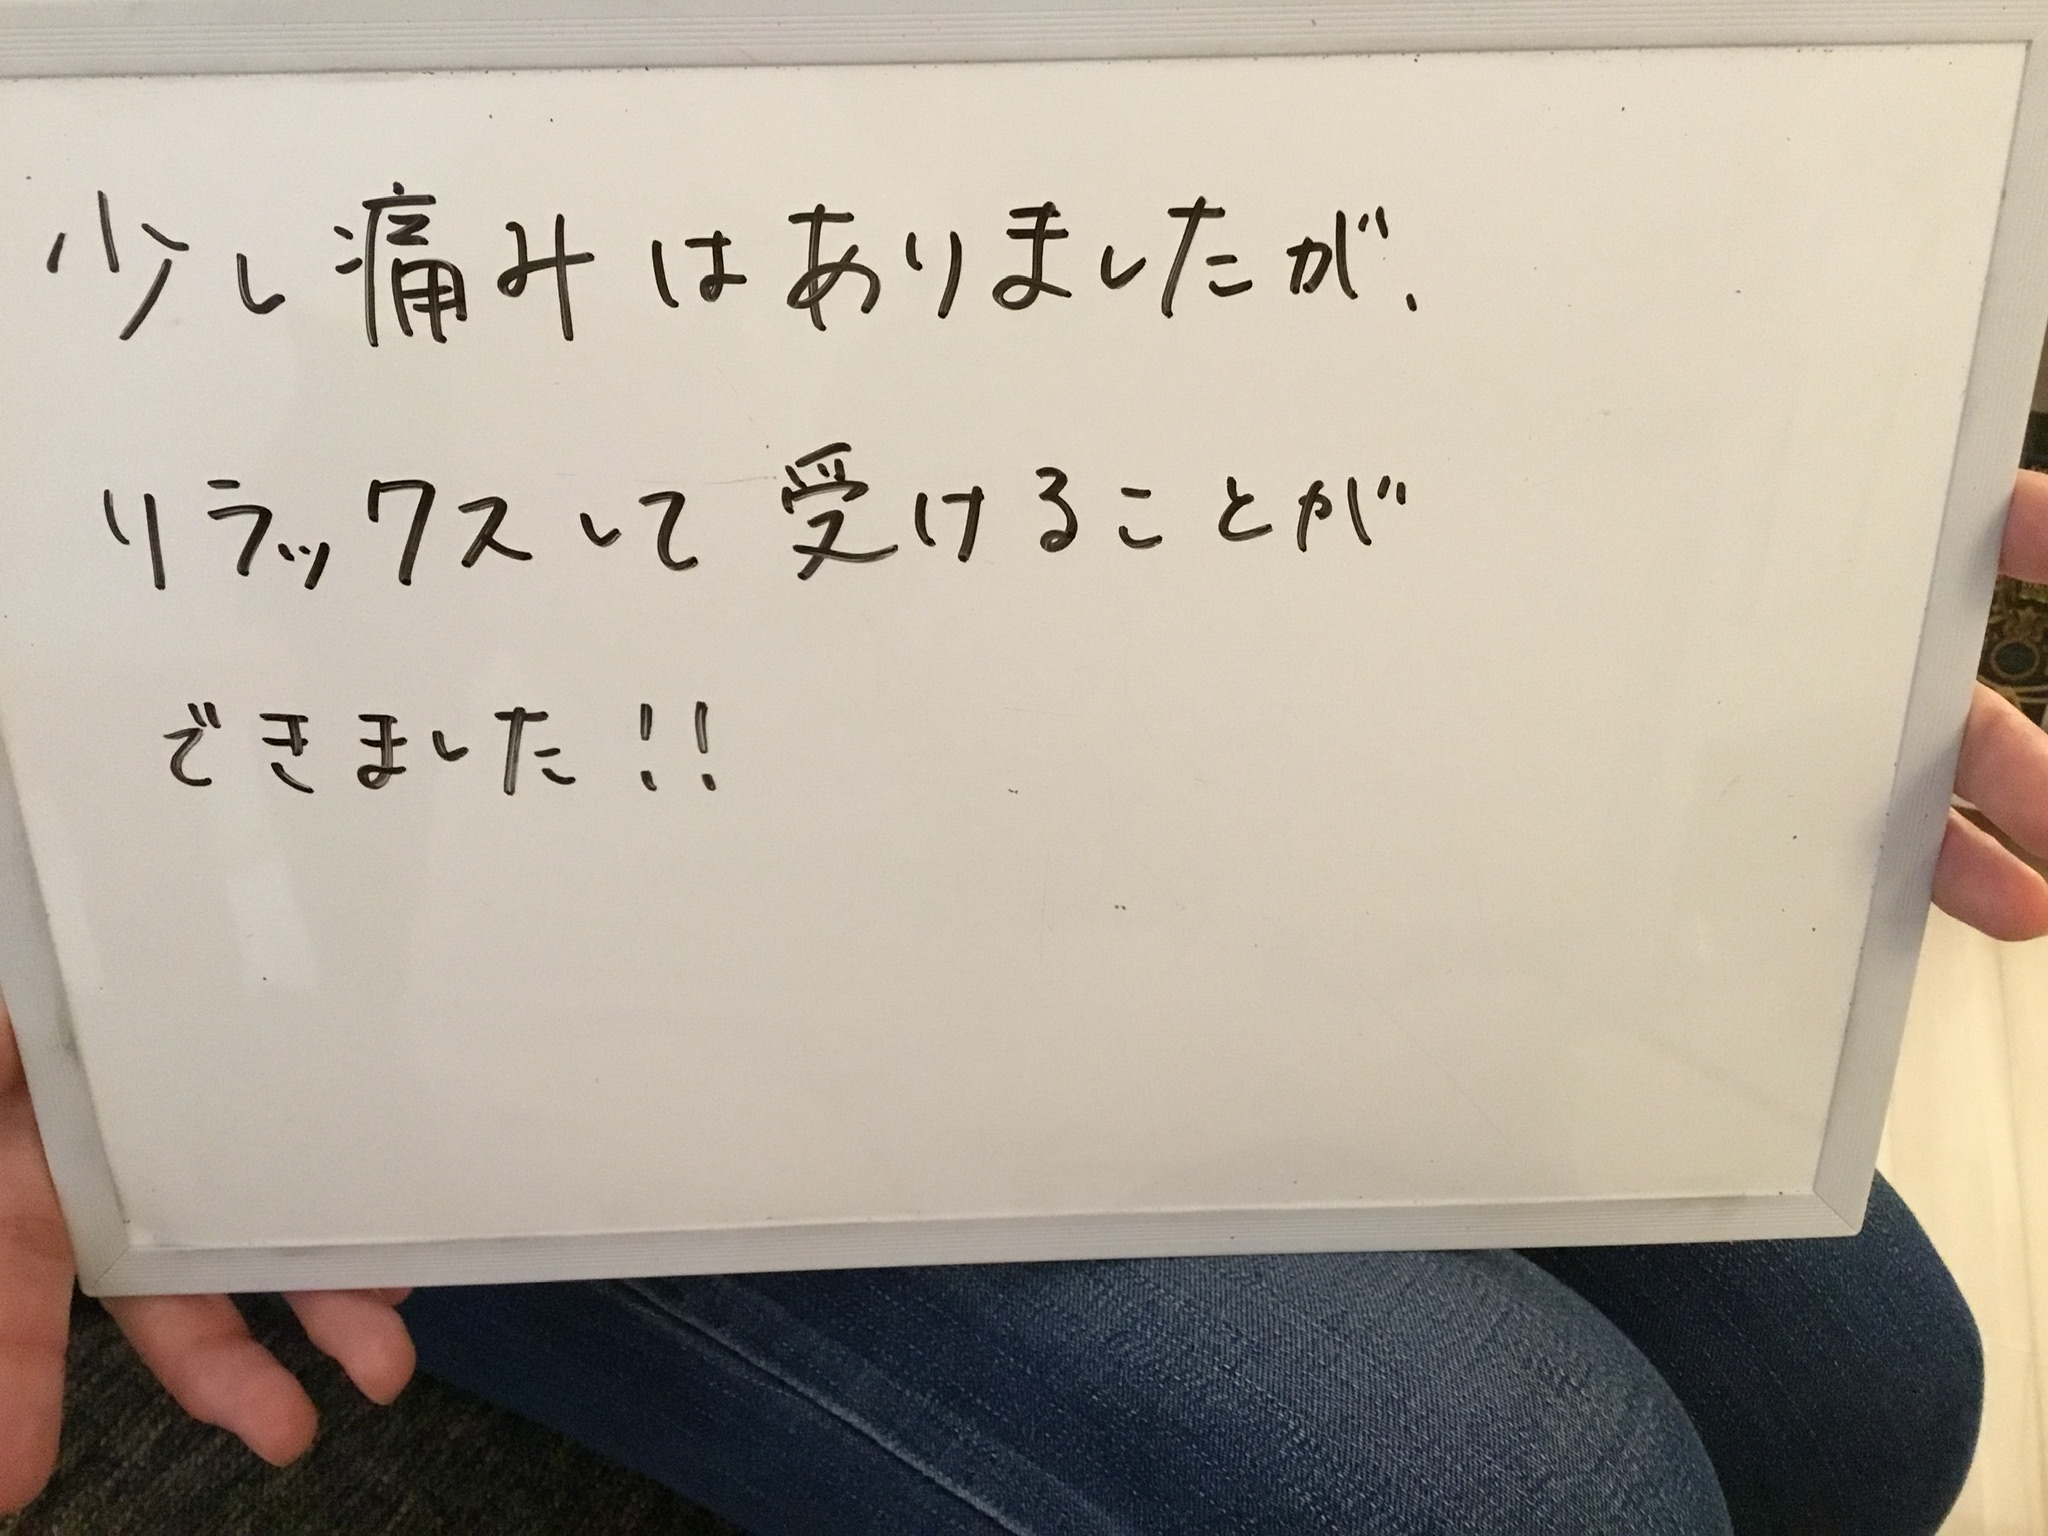 少し痛みはありましたが、
リラックスして受けることが
できました!!